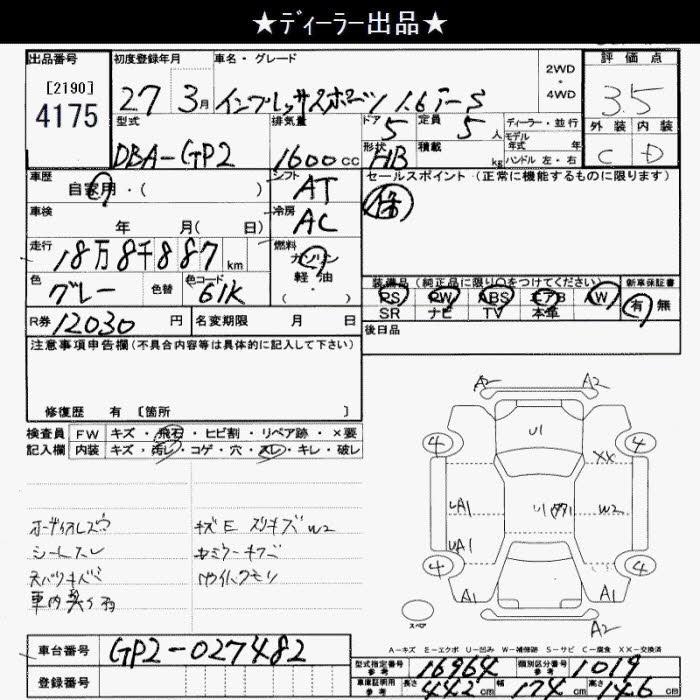 ★ディーラー出品★
出品番号 初度登録年月 車名・グレード 2WD・4WD 評価点
[2190]
4175
27 3月 インプレッサスポーツ 1.6i-S 3.5
型式 排気量 ドア 5 定員 5人 ディーラー・並行 外装 内装
モデル年式 年
DBA-GP2 1600cc 形状 HB 積載 kg ハンドル 左・右 C D
車歴 シフト セールスポイント(正常に機能するものに限ります)
自家用・( ) AT 保
車検 冷房
年 月( 日) AC
走行 燃料
18万8千887km ガソリン・軽油・( )
色 色替 色コード 装備品(純正品に限り○をつけてください) 新車保証書
グレー 61K PS PW ABS エアB AW 有 無
SR ナビ TV 本革
R券 12030円 名変期限 月 日 後日品
注意事項申告欄(不具合内容等は具体的に記入して下さい)
修復歴 有 [箇所 ]
検査員 FW キズ・飛石・ヒビ割・リペア跡・×要
記入欄 内装 キズ・汚レ・コゲ・穴・スレ・キレ・破レ
A2 A2
U1
4 4
XX
UA1 U1 W2
UA1
4 4
A1 A1
スペア A2
オーディオレス
シートスレ
車内
キズE スリキズ W2
A-キズ E-エクボ U-凹み W-補修跡 S-サビ C-腐食 XX-交換済
車台番号 GP2-027482
登録番号
型式指定番号 参考 16964 類別区分番号 参考 1019
車庫証明用 参考 長さ 442cm 幅 174cm 高さ 146cm